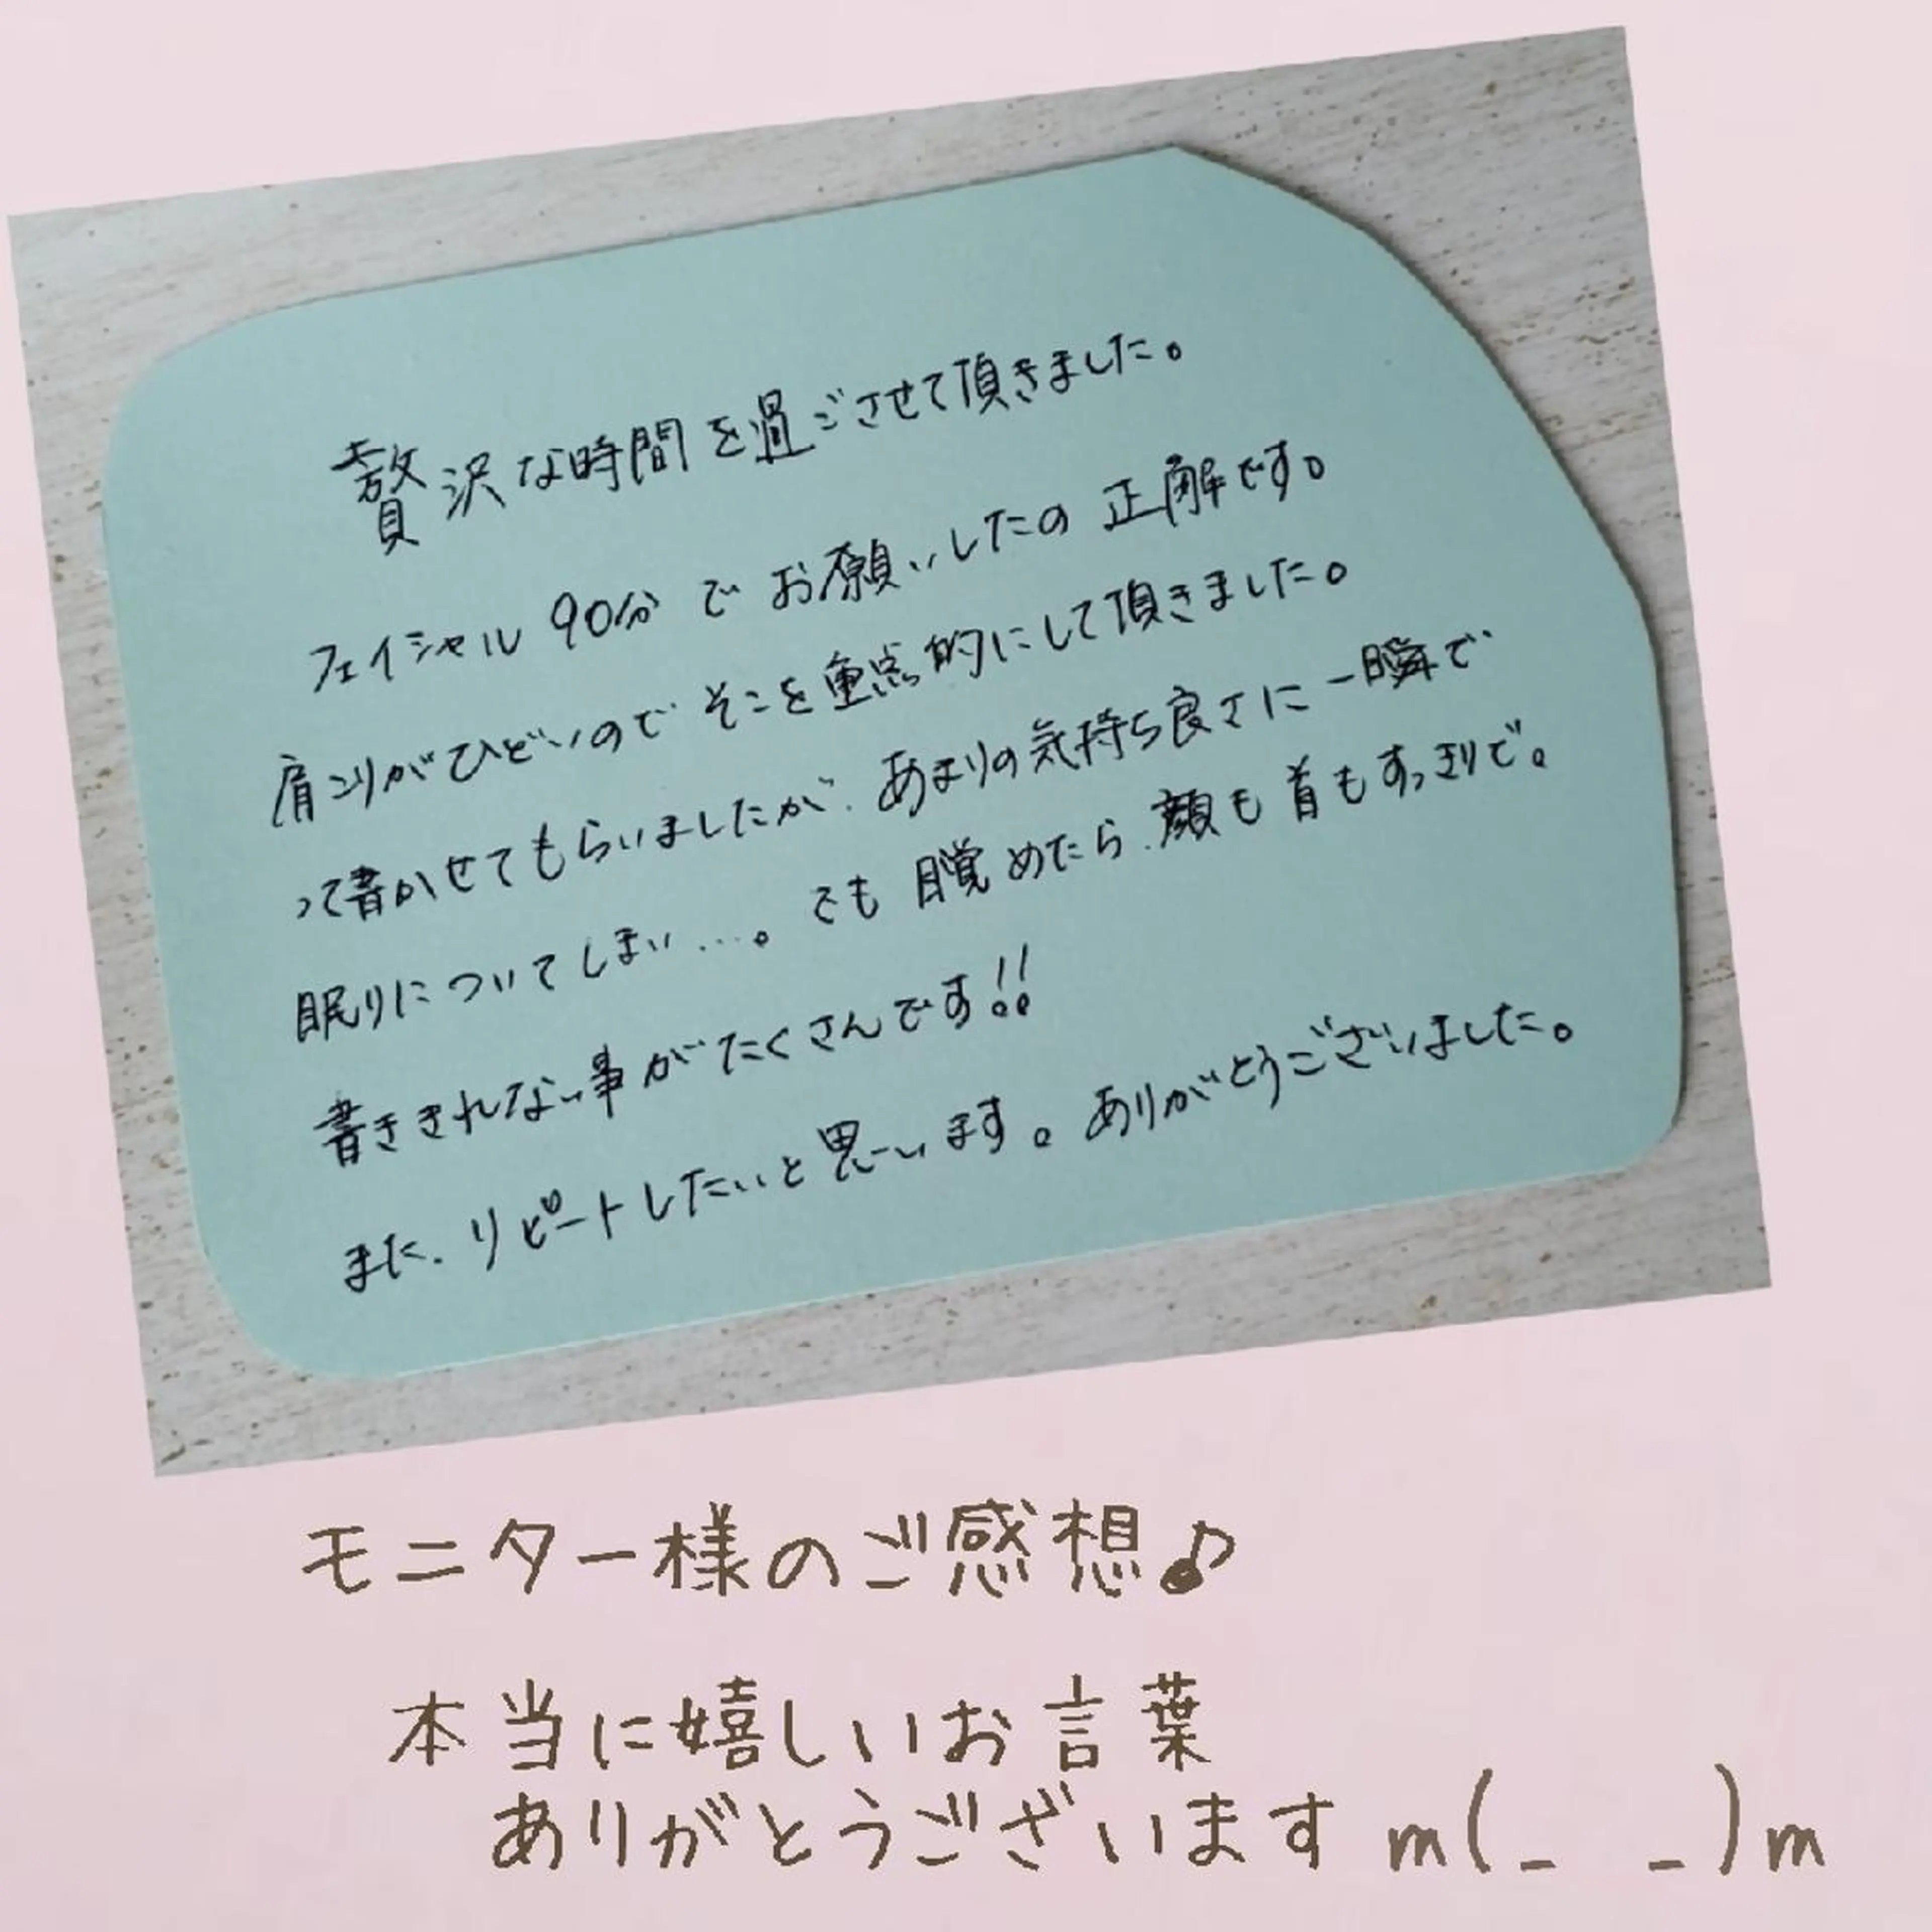 贅沢な時間を過ごさせて頂きました。
フェイシャル90分でお願いしたの正解です。
肩こりがひどいのでそこを重点的にして頂きました。
って書かせてもらいましたが、あまりの気持ち良さに一瞬で
眠りについてしまい…。でも目覚めたら、顔も首もすっきりで。
書ききれない事がたくさんです!!
また、リピートしたいと思います。ありがとうございました。
モニター様のご感想♪
本当に嬉しいお言葉
ありがとうございますm(_ _)m